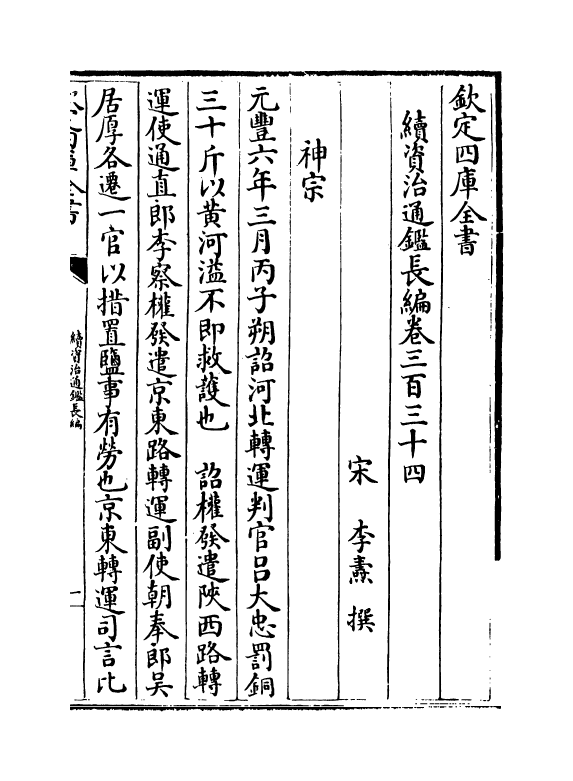 欽定四庫全書
續資治通鑑長編卷三百三十四
宋 李燾 撰
神宗
元豐六年三月丙子朔詔河北轉運判官吕大忠罰銅
三十斤以黄河溢不即救護也 詔權發遣陜西路轉
運使通直郎李察權發遣京東路轉運副使朝奉郎吳
居厚各遷一官以措置鹽事有勞也京東轉運司言比
續資治通鑑長編
一